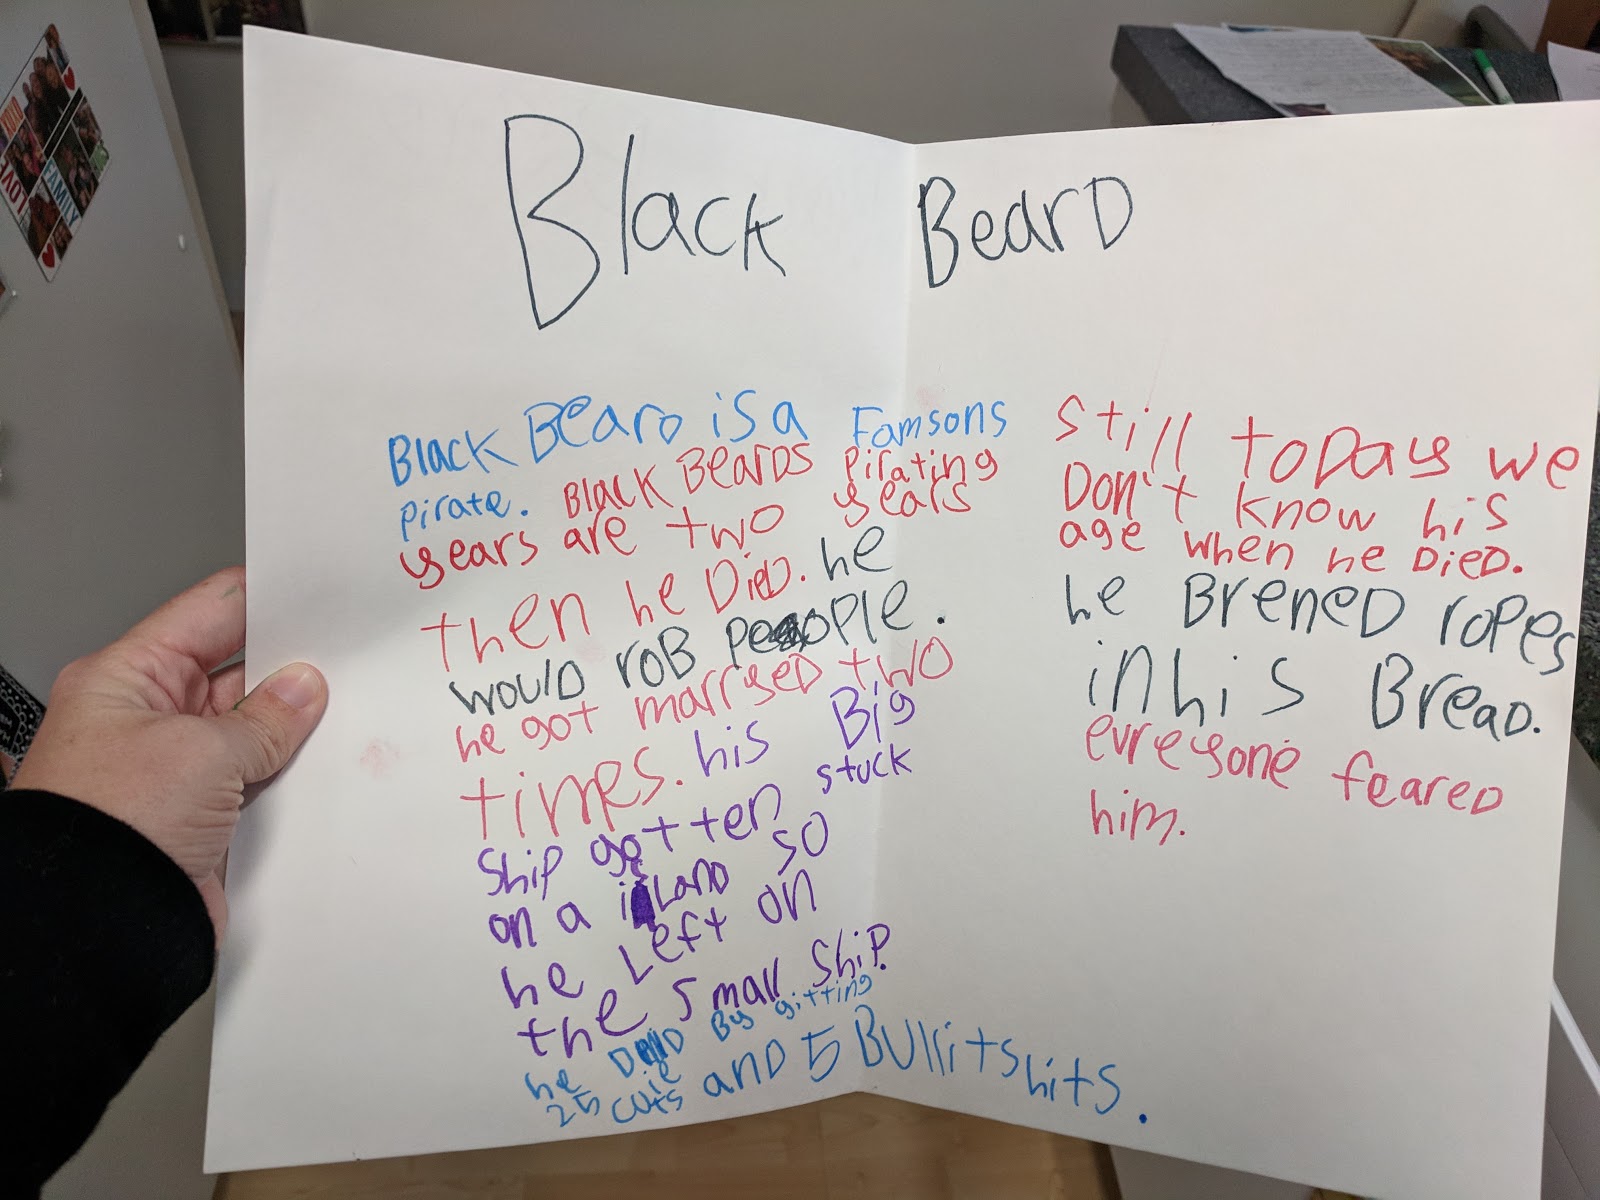 Black BearD
Black BearD is a Famsons
pirate. Black BearDs pirating
years are two years
then he DieD. he
woulD roB people.
he got marryeD two
times. his Big
Ship gotten stuck
on a isLanD so
he Left on
the Small Ship.
he DieD By gitting
25 cuts and 5 BUllits hits.
Still toDay we
Don't know his
age when he DieD.
he BreneD ropes
in his BreaD.
evreyone feareD
him.
LOVE
FAMILY